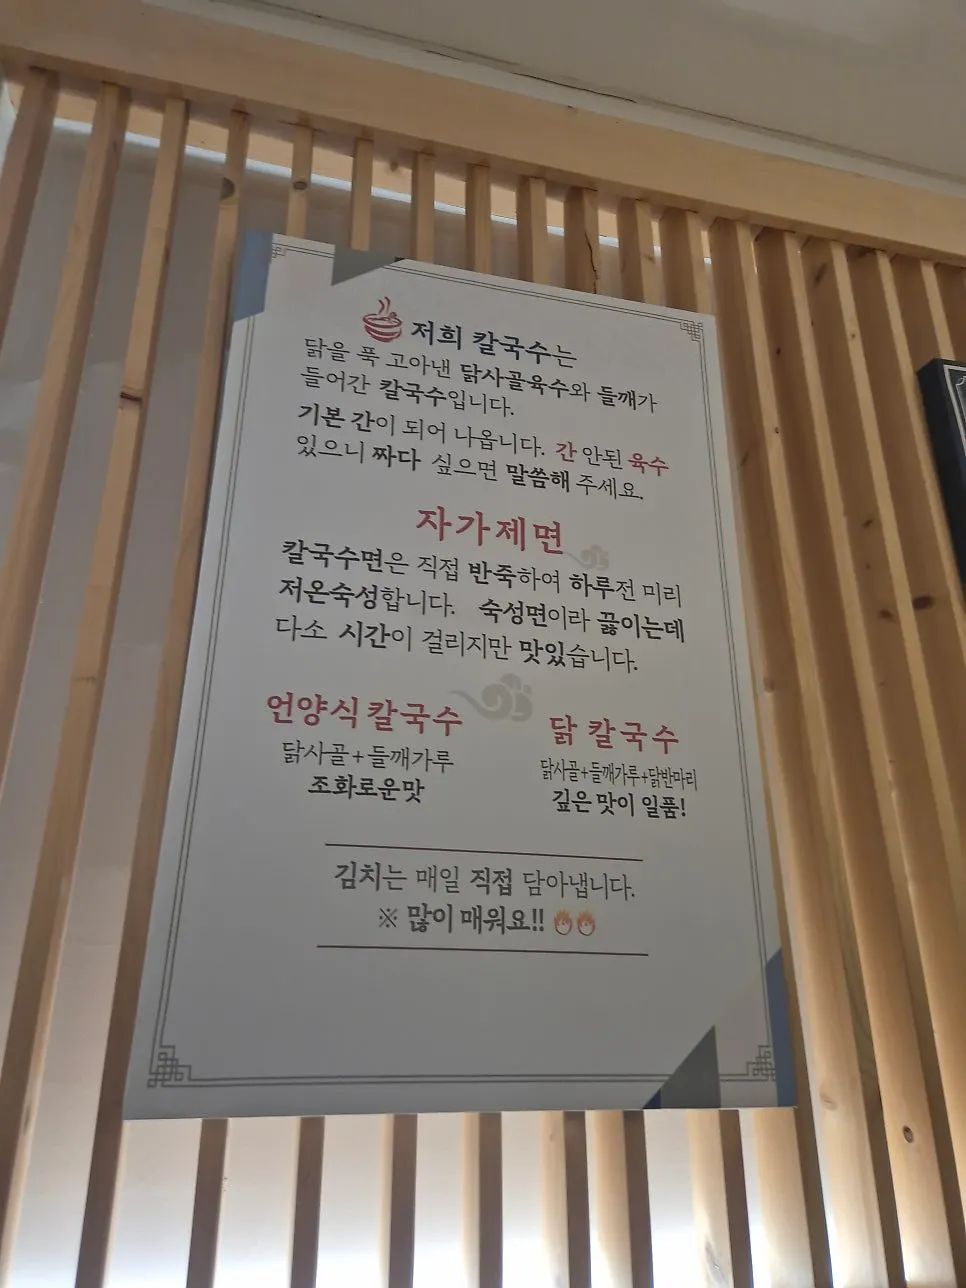 저희 칼국수는
닭을 푹 고아낸 닭사골육수와 들깨가
들어간 칼국수입니다.
기본 간이 되어 나옵니다. 간 안된 육수
있으니 짜다 싶으면 말씀해 주세요.
자가제면
칼국수면은 직접 반죽하여 하루전 미리
저온숙성합니다. 숙성면이라 끓이는데
다소 시간이 걸리지만 맛있습니다.
언양식칼국수
닭사골+들깨가루
조화로운맛
닭 칼국수
닭사골+들깨가루+닭반마리
깊은 맛이 일품!
김치는 매일 직접 담아냅니다.
※ 많이 매워요!!